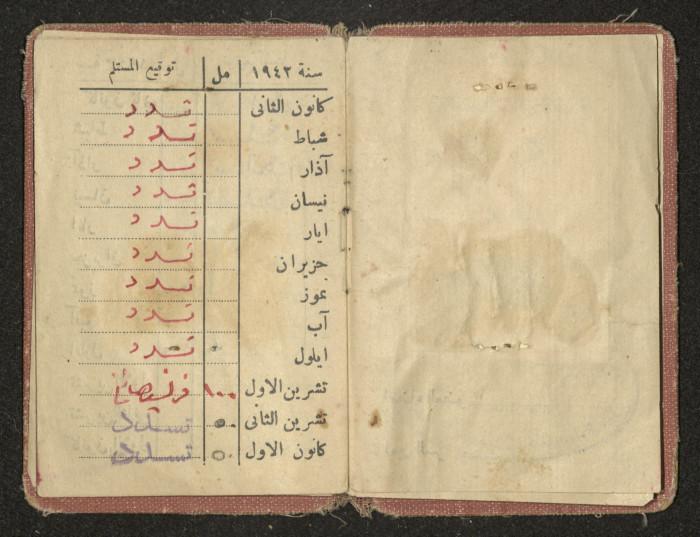 سنة ١٩٤٢ مل توقيع المستلم
كانون الثانى تسدد
شباط تسدد
آذار تسدد
نيسان تسدد
ايار تسدد
حزيران تسدد
تموز تسدد
آب تسدد
ايلول تسدد
تشرين الاول ١٠٠
تشرين الثانى تسدد
كانون الاول تسدد